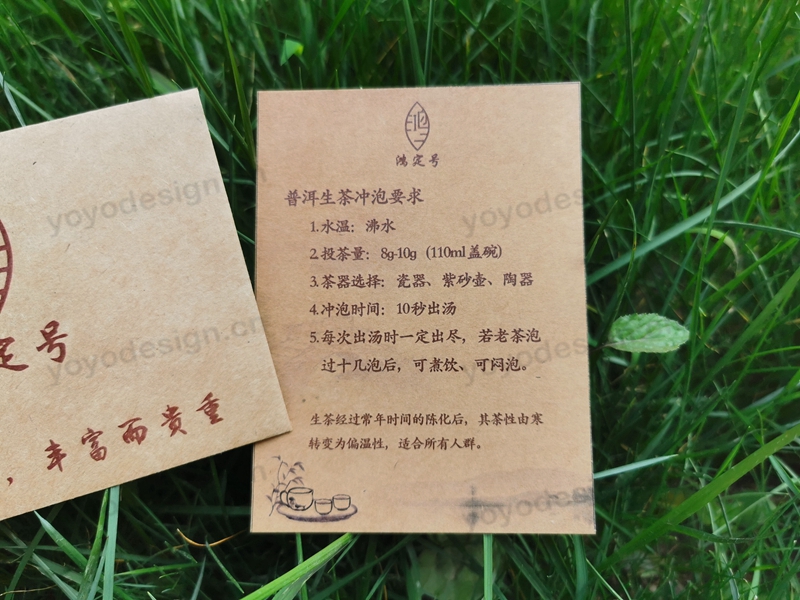 定号
，丰富而贵重
鸿定号
普洱生茶冲泡要求
1.水温：沸水
2.投茶量：8g-10g（110ml盖碗）
3.茶器选择：瓷器、紫砂壶、陶器
4.冲泡时间：10秒出汤
5.每次出汤时一定出尽，若老茶泡
过十几泡后，可煮饮、可闷泡。
生茶经过常年时间的陈化后，其茶性由寒
转变为偏温性，适合所有人群。
yoyodesign.cn
yoyodesign.cn